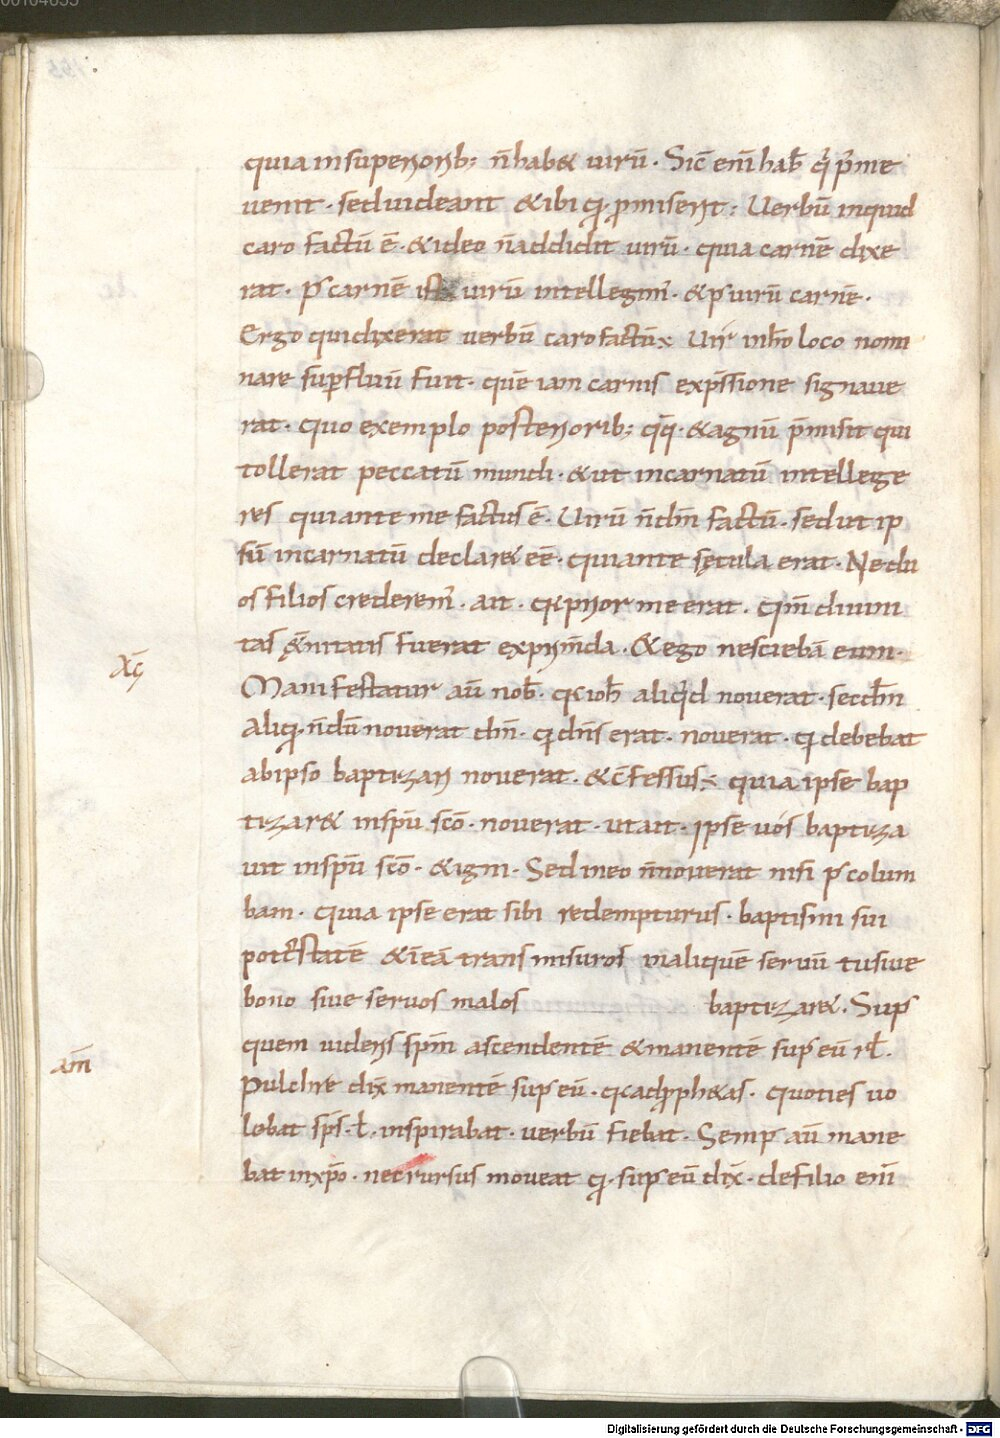 quia insuperiorib; n̄hab& uirū. Sic̄ enī hab̄ q̄ p̄me
uenit. seduideant &ibi q; p̄miserit; Uerbū inquid
caro factū ē. &ideo n̄addidit uirū. quia carnē dixe
rat. p̄ carnē uirū intellegim̄. &p uirū carnē.
Ergo quidixerat verbū carofactū; Uir inh̄o loco nomi
nare sup̄fluū fuit. quē iam carnis exp̄ssione signaue
rat. quo exemplo posteriorib; q̄q̄. &agnū p̄misit qui
tollerat peccatū mundi. &ut incarnatū intellege
res quiante me factus ē. Uirū n̄dm̄ factū. sedut ip
sū incarnatū declar& eē. quiante sęcula erat. Nedu
os filios crederem̄. ait. q̄ prior me erat. qm̄ diuini
tas &n̄itatis fuerat exprim̄da. &ego nesciebā eum.
Xc̄
Manifestatur aū nob̄. q̄ ioh̄ aliq̇d noverat. secdm̄
Aliq; n̄dū noverat dm̄. q̄ dn̄s erat. noverat. q̄ debebat
abipso baptizari noverat. &c̄fessus; quia ipse bap
tizar& inspū scō. noverat. utait. ipse uos baptiza
uit inspū scō. &igni. Sed ineo n̄noverat nisi p̄ colum
bam. quia ipse erat sibi redempturus. baptismi sui
potestatē &īeā transmisuros inaliquē seruū tusiue
bono siue servos malos baptizar&. Sup
quem uideris spm̄ ascendentē &manentē sup eū rł.
am̄
Pulchre dix̄ manentē sup eū. q̄ adp̄ph&as. quoties uo
lebat sp̄s. ł. inspirabat. verbū fiebat. Semp aū mane
bat inxp̄o. nec rursus moveat q; sup eū dix̄. defilio enī
Digitalisierung gefördert durch die Deutsche Forschungsgemeinschaft - DFG